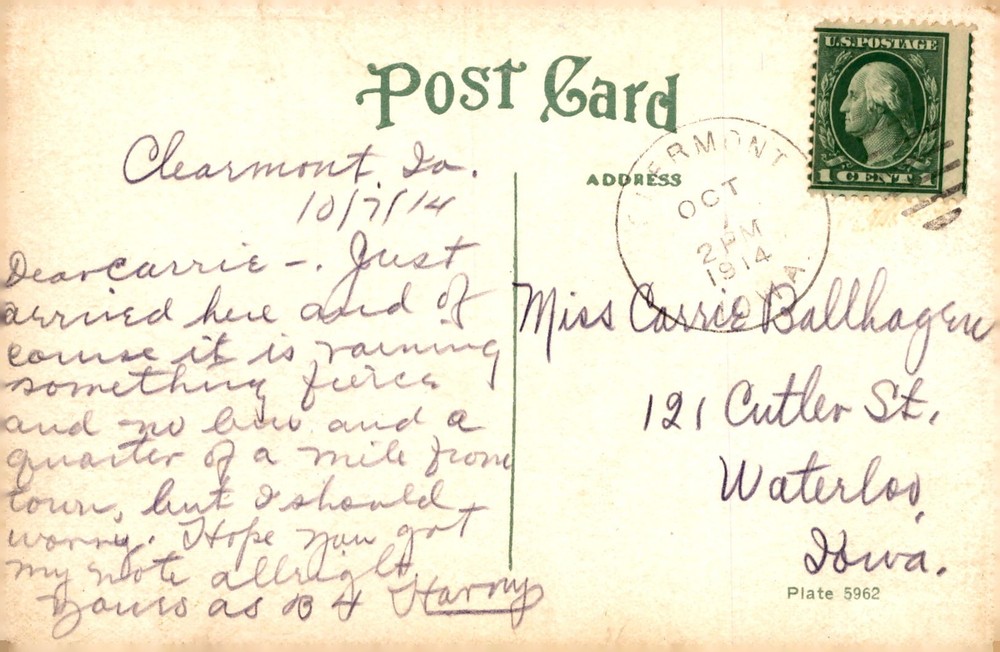 Post Card
U.S. POSTAGE
1 CENT 1
ADDRESS
CLERMONT
OCT
7
2 PM
1914
IOWA
Clearmont, Ia.
10/7/14
Dear Carrie -. Just
arrived here and of
course it is raining
something fierce
and no bus and a
quarter of a mile from
town, but I should
worry. Hope you got
my note allright
Yours as B 4 Harry
Miss Carrie Ballhagen
121 Cutler St.
Waterloo,
Iowa.
Plate 5962